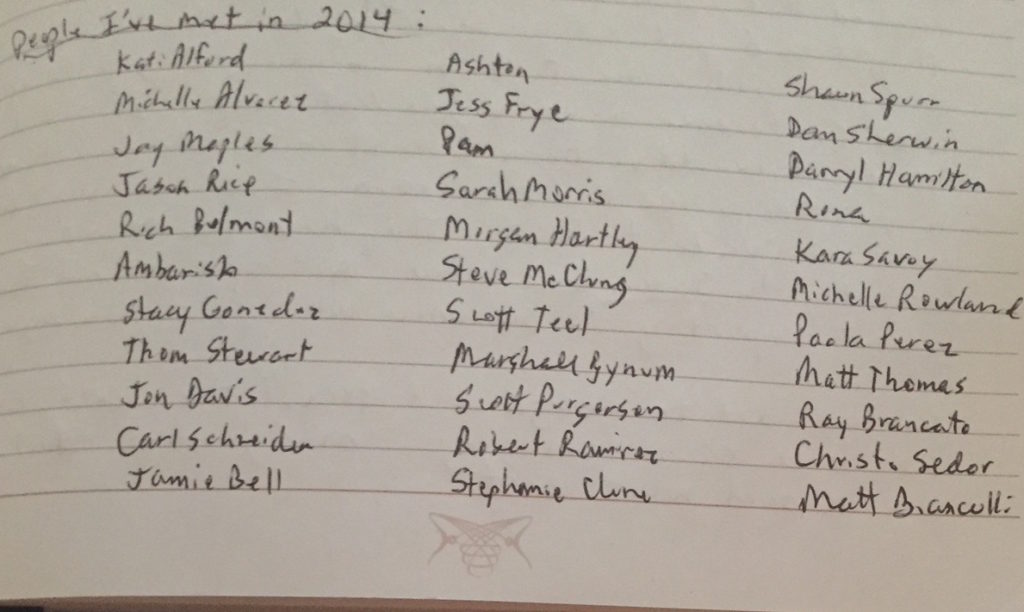 People I've met in 2014:
Kati Alford
Michelle Alvarez
Jay Maples
Jason Rice
Rich Belmont
Ambarish
Stacy Gonzalez
Thom Stewart
Jon Davis
Carl Schneider
Jamie Bell
Ashton
Jess Frye
Pam
Sarah Morris
Morgan Hartley
Steve McClung
Scott Teel
Marshall Bynum
Scott Purgerson
Robert Ramirez
Stephanie Clune
Shawn Spurr
Dan Sherwin
Darryl Hamilton
Rona
Kara Savoy
Michelle Rowland
Paola Perez
Matt Thomas
Ray Brancato
Christo Sedor
Matt Branculli